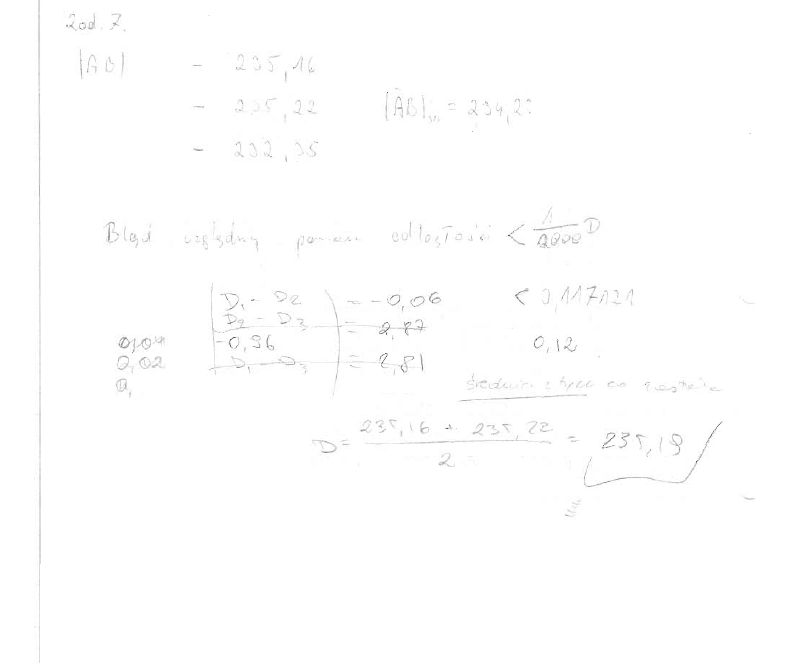 Zad. 7.
|AB| - 235,16
- 235,22 |AB|śr. = 234,2
- 232,35
Błąd względny pomiaru odległości < 1/2000 D
D₁ - D₂ = -0,06 < 0,117121
D₂ - D₃ = 2,87
-0,96 0,12
0,02 D₁ - D₃ = 2,81
0,
średnia z tych co zostało
D = (235,16 + 235,22)/2 = 235,19